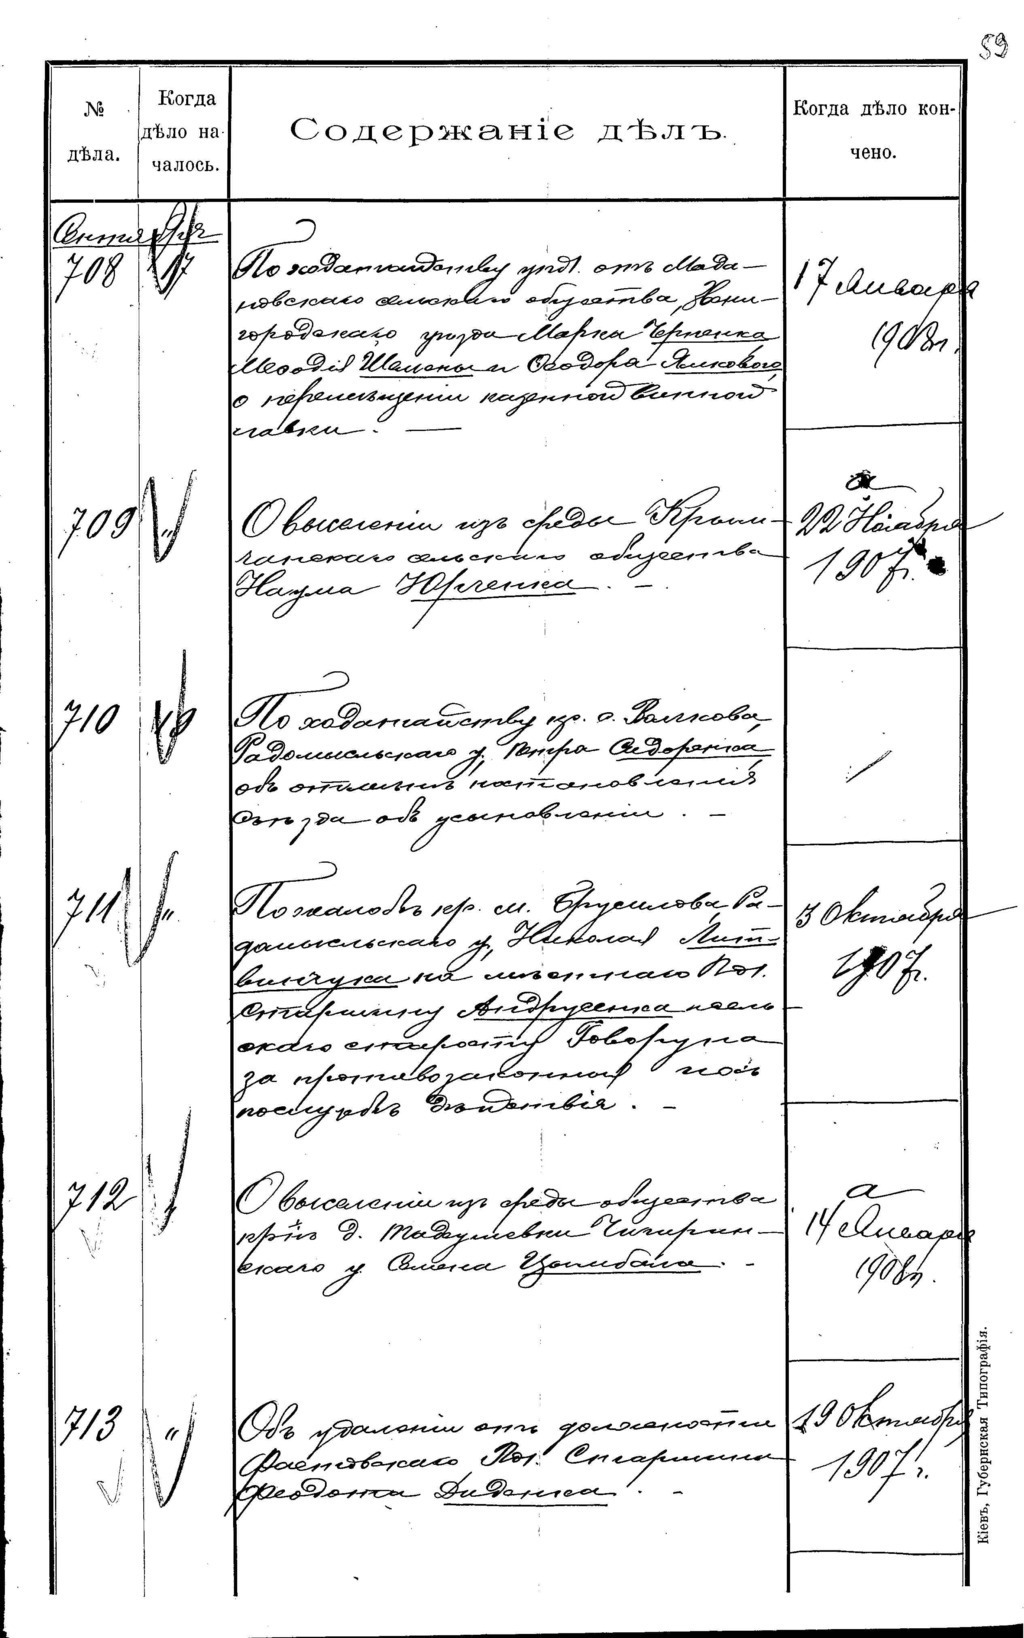 59
№ дѣла.
Когда дѣло началось.
Содержаніе дѣлъ.
Когда дѣло кончено.
Сентября
708
17
По ходатайству упл. отъ Мада-
новскаго сельскаго общества, Звени-
городскаго уѣзда Марка Черненка
Меѳодія Шамены и Ѳеодора Ялковаго
о перемѣщеніи казенной винной
лавки. —
17 Января
1908 г.
709
"
О выселеніи изъ среды Крыли-
чанскаго сельскаго общества
Наума Юрченка. —
22 Ноября
1907 г.
710
18
По ходатайству кр. с.
Радомысльскаго у, Петра Сидоренка
объ отмѣнѣ постановленія
Съѣзда объ усыновленіи. —
/
711
"
По жалобѣ кр. м. Брусилова, Ра-
домысльскаго у, Николая Лит-
винчука на мѣстнаго Вол.
Старшину Андрусенка и сель-
скаго старосту Говоруна
за противозаконныя по
службѣ дѣйствія. —
3 Октября
1907 г.
712
"
О выселеніи изъ среды общества
кр-нъ д. Тадеушевки Чигирин-
скаго у Семена Цымбала. -
14 Января
1908 г.
713
"
Объ удаленіи отъ должности
Фастовскаго Вол. Старшины
Ѳеодота Диденка. -
19 Октября
1907 г.
Кіевъ, Губернская Типографія.